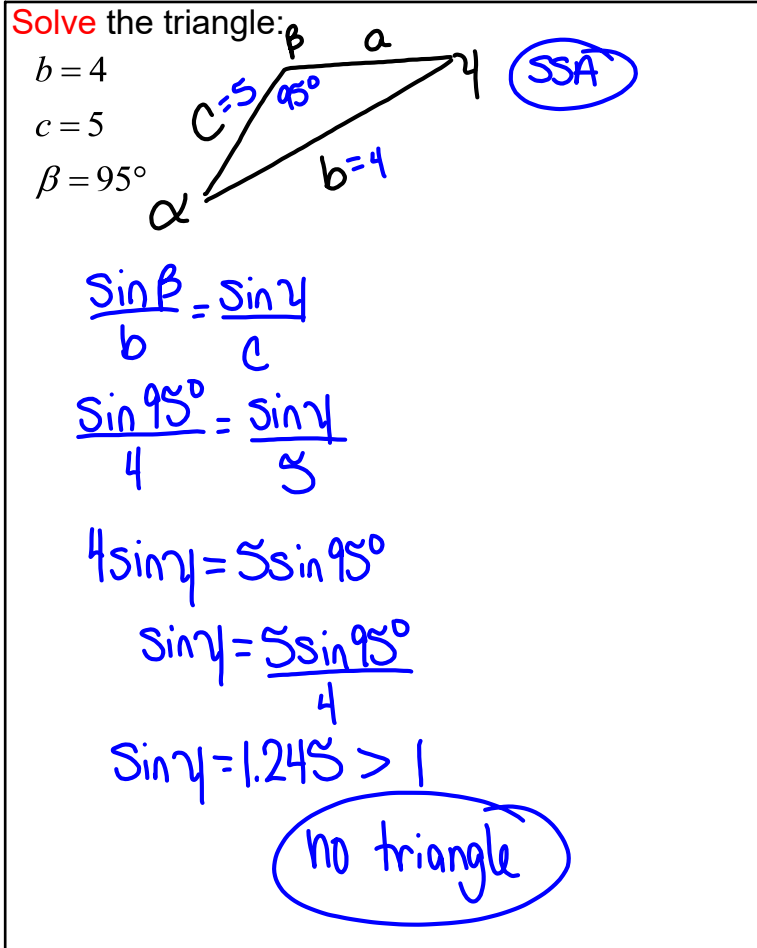 Solve the triangle:
b = 4
c = 5
β = 95°
β
a
γ
C=5
95°
b=4
α
SSA
sin β / b = sin γ / c
sin 95° / 4 = sin γ / 5
4 sin γ = 5 sin 95°
sin γ = 5 sin 95° / 4
sin γ = 1.245 > 1
no triangle